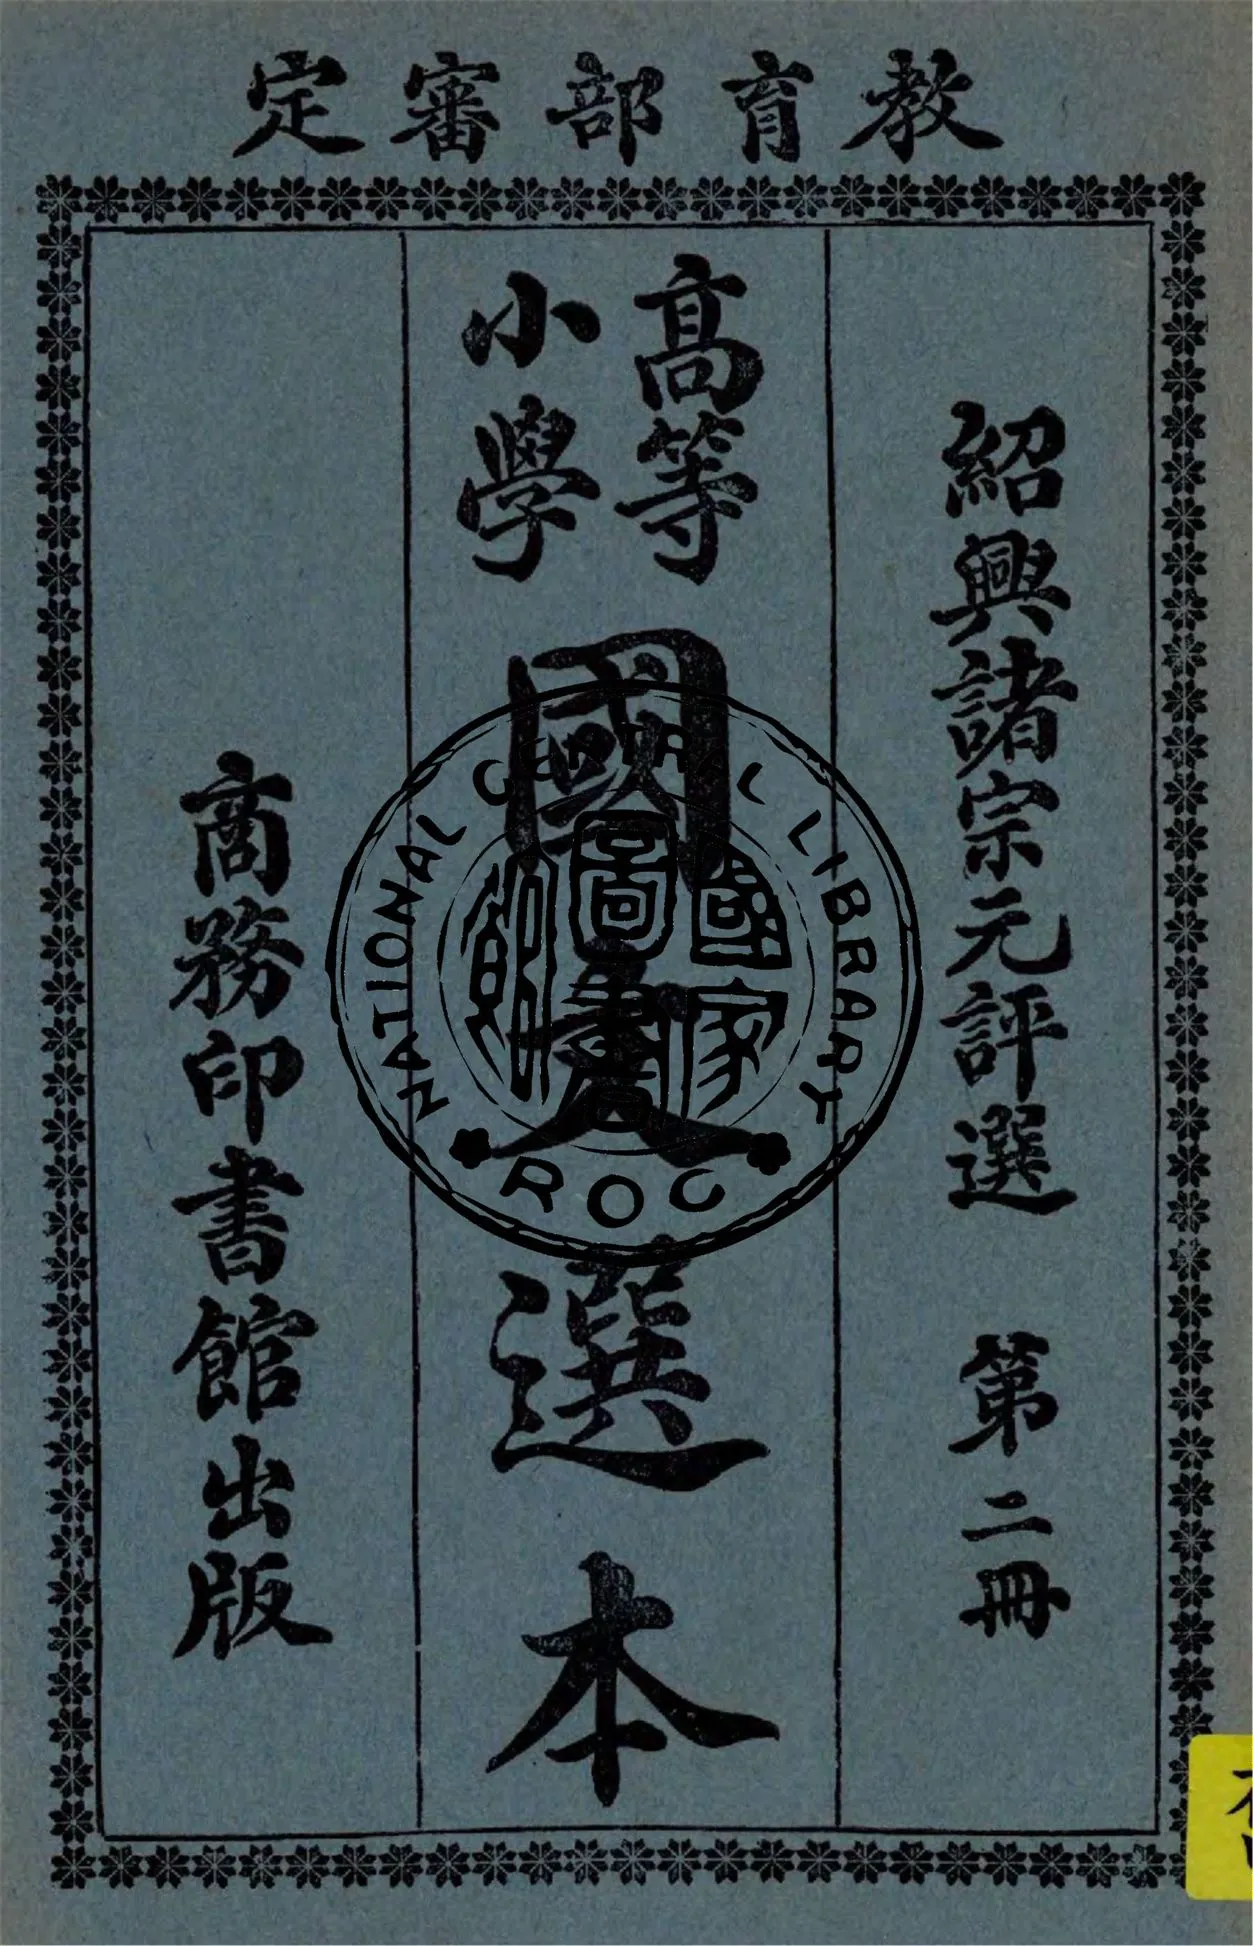 教育部審定
紹興諸宗元評選　第二冊
高等
小學
國文選本
商務印書館出版
NATIONAL CENTRAL LIBRARY
ROC
國家
圖書
館